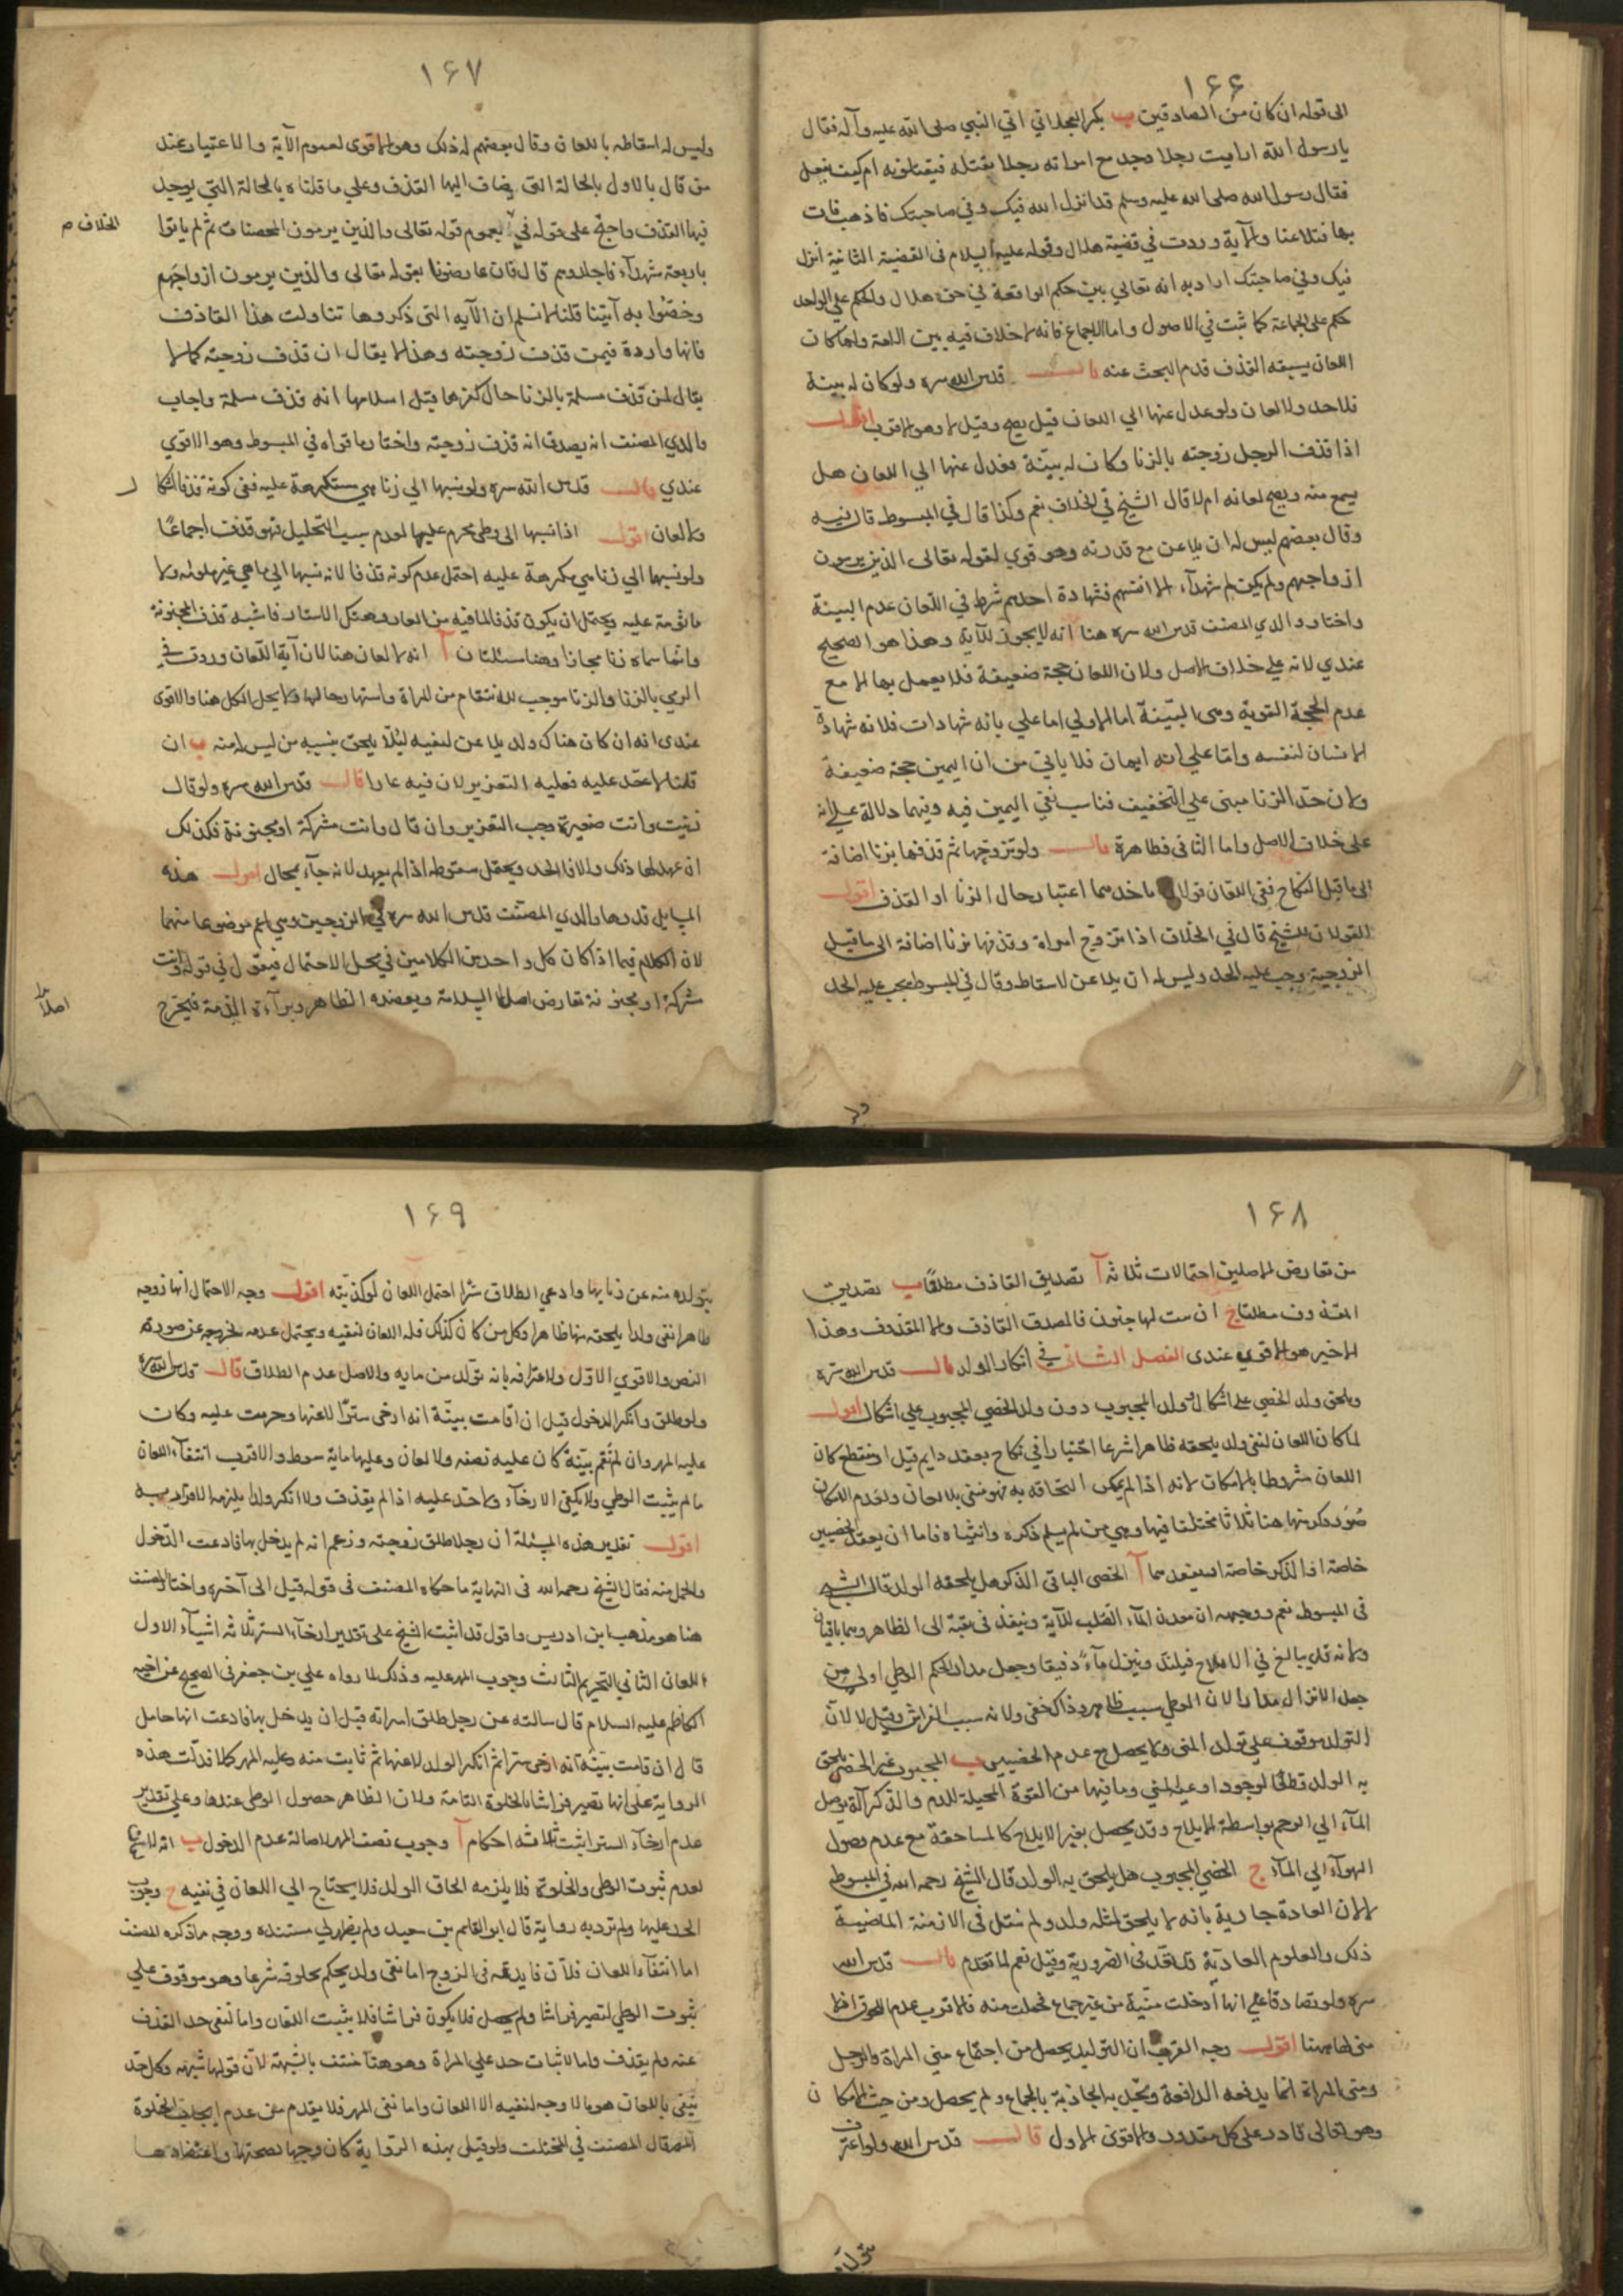 ١۶۶
الى قوله ان كان من الصادقين ب بكر العجلاني اتي النبي صلى الله عليه وآله فقال
يا رسول الله ارايت رجلا وجد مع امراته رجلا يقتله فيقتلونه ام كيف يفعل
فقال رسول الله صلى الله عليه وسلم قد انزل الله فيك وفي صاحبتك فاذهب فات
بها فتلاعنا والآية وردت في قضية هلال وقوله عليه السلام في القضية الثانية انزل
فيك وفي صاحبتك اراد به انه تعالى بين حكم الواقعة في حق هلال والحكم على الواحد
حكم على الجماعة كما ثبت في الاصول واما الاجماع فانه لا خلاف فيه بين الامة ولما كان
اللعان يسبقه القذف قدم البحث عنه قال قدس الله سره ولو كان له بينة
فلا حد ولا لعان ولو عدل عنها الي اللعان قيل يصح وقيل لا وهو الاقرب اقول
اذا قذف الرجل زوجته بالزنا وكان له بينة فعدل عنها الي اللعان هل
يسمع منه ويصح لعانه ام لا قال الشيخ في الخلاف نعم وكذا قال في المبسوط قال فيه
وقال بعضهم ليس له ان يلاعن مع قدرته وهو قوي لقوله تعالى الذين يرمون
ازواجهم ولم يكن لهم شهدآء الا انفسهم فشهادة احدهم شرط في اللعان عدم البينة
واختار والدي المصنف قدس الله سره هنا انه لا يجوز للآية وهذا هو الصحيح
عندي لانه على خلاف الاصل ولان اللعان حجة ضعيفة فلا يعمل بها الا مع
عدم الحجة القوية وهي البينة اما الاولي اما علي بانه شهادات فلانه شهادة
الانسان لنفسه واما علي انه ايمان فلا ياتي من ان اليمين حجة ضعيفة
ولان حد الزنا مبني علي التخفيف فناسب نفي اليمين فيه وفيهما دلالة علي انه
على خلاف الاصل واما الثاني فظاهرة قال ولو تزوجها ثم قذفها بزنا اضافة
الى ما قبل النكاح ففي اللعان قولان ماخذهما اعتبار حال الزنا او القذف اقول
القولان للشيخ قال في الخلاف اذا تزوج امراة وقذفها بزنا اضافة الى ما قبل
الزوجية وجب عليه الحد وليس له ان يلاعن لاسقاطه وقال في المبسوط يجب عليه الحد
١۶٧
وليس له اسقاطه باللعان وقال بعضهم له ذلك وهو الاقوى لعموم الآية والاعتبار عند
من قال بالاول بالحالة التي يضاف اليها القذف وعلي ما قلناه بالحالة التي يوجد
فيها القذف واحتج على قوله في بعموم قوله تعالى والذين يرمون المحصنات ثم لم ياتوا
الخلاف م
باربعة شهدآء فاجلدوهم قال فان عارضونا بقوله تعالى والذين يرمون ازواجهم
وخصوا به آيتنا قلنا لا نسلم ان الآيه التى ذكروها تناولت هذا القاذف
فانها واردة فيمن قذف زوجته وهذا لا يقال ان قذف زوجته كما لا
يقال لمن قذف مسلمة بالزنا حال كفرها قبل اسلامها انه قذف مسلمة واجاب
والدي المصنف انه يصدق انه قذف زوجته واختار ما قواه في المبسوط وهو الاقوي
عندي قال قدس الله سره ولو نسبها الي زنا هي مستكرهة عليه ففى كونه قذفا اشكال
ولا لعان اقول اذا نسبها الى وطي محرم عليهما لعدم سبب التحليل فهو قذف اجماعًا
ولو نسبها الي زنا هي مكرهة عليه احتمل عدم كونه قذفا لانه نسبها الي ما هي غير ملومة ولا
ماثومة عليه ويحتمل ان يكون قذفا لما فيه من العار وهتك الاستار فاشبه قذف المجنونة
وانما سماه زنا مجازا وهنا مسئلتان آ انه لا لعان هنا لان آية اللعان وردت في
الرمي بالزنا والزنا موجب للانتقام من المراة واشتهار حالها ولا يحل الكل هنا والاقوى
عندى انه ان كان هناك ولد يلاعن لنفيه ليلا يلحق بنسبه من ليس منه ب ان
قلنا لا حد عليه فعليه التعزير لان فيه عارا قال قدس الله سره ولو قال
زنيت وانت صغيرة وجب التعزير وان قال وانت مشركة او مجنونة فكذلك
ان عهد لها ذلك والا فالحد ويحتمل سقوطه اذا لم يعهد لانه جآء بمحال اقول هذه
المسايل قدرها والدي المصنف قدس الله سره في الزوجين وهي اعم موضوعا منهما
لان الكلام فيما اذا كان كل واحد من الكلامين في محل الاحتمال فيقول في قوله وانت
مشركة او مجنونة تعارض اصل السلامة ويعضده الظاهر وبرآءة الذمة فيخرج
اصلا
١۶٨
من تعارض الاصلين احتمالات ثلاثة آ تصديق القاذف مطلقا ب تصديق
المقذوف مطلقا ج ان ست لها جنون فالمصدق القاذف والا المقذوف وهذا
الاخير هو الاقوي عندى الفصل الثاني في انكار الولد قال قدس الله سره
ويلحق ولد الخصي على اشكال وولد المجبوب دون ولد الخصي المجبوب علي اشكال اقول
لما كان اللعان لنفى ولد يلحقه ظاهرا شرعا اختيارا في نكاح بعقد دايم قيل او منقطع كان
اللعان مشروطا بالامكان لانه اذا لم يمكن التحاقه به فهو منتفي بلا لعان ولعدم الامكان
صُوَر ذكر منها هنا ثلاثا مختلفا فيها وهي من لم يسلم ذكره وانثياه فاما ان يفقد الخصيين
خاصة او الذكر خاصة او يفقدهما آ الخصى الباقى الذكر هل يلحقه الولد قال الشيخ
فى المبسوط نعم ووجهه ان معدن المآء الصلب للآية وينفذ فى ثقبة الى الظاهر وهما باقيان
ولانه قد يبالغ في الايلاج فيلتذ وينزل مآءً رقيقا وجعل مدار الحكم الوطي اولى من
جعل الانزال مدارا لان الوطي سبب ظاهر وذاك خفى ولانه سبب الفراش وقيل لا لان
التولد موقوف على تولد المنى ولا يحصل مع عدم الخصيين ب المجبوب غير الخصي يلحق
به الولد قطعًا لوجود اوعية المني وما فيها من القوة المحيلة للدم والذكر آلة يوصل
المآء الي الرحم بواسطة الايلاج وقد يحصل بغير الايلاج كالمساحقة مع عدم وصول
الهوآء الي المآء ج الخصي المجبوب هل يلحق به الولد قال الشيخ رحمه الله في المبسوط
لا لان العادة جارية بانه لا يلحق لمثله ولد ولم ينقل فى الازمنة الماضية
ذلك والعلوم العادية قد تعد في الضرورية وقيل نعم لما تقدم قال قدس الله
سره ولو تصادقا علي انها ادخلت منية من غير جماع فحملت منه فالاقرب عدم اللحوق اذ لا
مني لها هنا اقول وجه القرب ان التوليد يحصل من اجتماع مني المراة والرجل
ومني المراة انما يدفعه الدافعة ويخل به الجاذبة بالجماع ولم يحصل ومن حيث الامكان
وهو تعالى قادر على كل مقدور والاقوى الاول قال قدس الله ولو اعترف
١۶٩
بتولده منه عن زنا بها وادعي الطلاق سرا احتمل اللعان لو كذبته اقول وجه الاحتمال انها زوجه
ظاهرا نفى ولدا يلحقه منها ظاهرا وكل من كان كذلك فله اللعان لنفيه ويحتمل عدمه لخروجه عن صورة
النص والاقوي الاول ولاعترافه بانه تولد من مايه والاصل عدم الطلاق قال قدس الله سره
ولو طلق وانكر الدخول قيل ان اقامت بينة انه ارخى سترًا لاعنها وحرمت عليه وكان
عليه المهر وان لم تقم بينة كان عليه نصفه ولا لعان وعليها ماية سوط والاقرب انتفآء اللعان
ما لم يثبت الوطي ولا يكفي الارخآء ولا حد عليه اذا لم يقذف ولا انكر ولدا يلزمه الاقرار به
اقول تقدير هذه المسئلة ان رجلا طلق زوجته وزعم انه لم يدخل بها فادعت الدخول
والحمل منه فقال الشيخ رحمه الله فى النهاية ما حكاه المصنف فى قوله قيل الى آخره واختار المصنف
هنا هو مذهب ابن ادريس واقول قد اثبت الشيخ على تقدير ارخآء الستر ثلاثه اشيآء الاول
اللعان الثاني التحريم الثالث وجوب المهر عليه وذلك لما رواه علي بن جعفر فى الصحيح عن اخيه
الكاظم عليه السلام قال سالته عن رجل طلق امراته قبل ان يدخل بها فادعت انها حامل
قال ان قامت بينة انه ارخى سترا ثم انكر الولد لاعنها ثم ثابت منه وعليه المهر كملا فدلت هذه
الرواية على انها تصير فراشا بالخلوة التامة ولان الظاهر حصول الوطى عندها وعلى تقدير
عدم ارخآء الستر اثبت ثلاثه احكام آ وجوب نصف المهر لاصالة عدم الدخول ب انه لا
لعدم ثبوت الوطى والخلوة فلا يلزمه الحاق الولد فلا يحتاج الي اللعان في نفيه ج وجوب
الحد عليها ولم ترد به رواية قال ابو القاسم بن سعيد ولم يظهر لي مستنده ووجه ما ذكره المصنف
اما انتفآء اللعان فلان فايدته فى الزوج اما نفى ولد يحكم بلحوقه شرعا وهو موقوف علي
ثبوت الوطي لتصير فراشا ولم يحصل فلا يكون فراشا فلا يثبت اللعان واما لنفى حد القذف
عنه ولم يقذف واما لاثبات حد علي المراة وهو هنا منتف بالشبهة لان قولها شبهة وكل حد
ينتفي باللعان هو ما لا وجه لنفيه الا اللعان واما نفى المهر فلما يقدم من عدم ايجاب الخلوة
المهر قال المصنف في المختلف ولو قيل بهذه الرواية كان وجها لصحتها واعتضادها